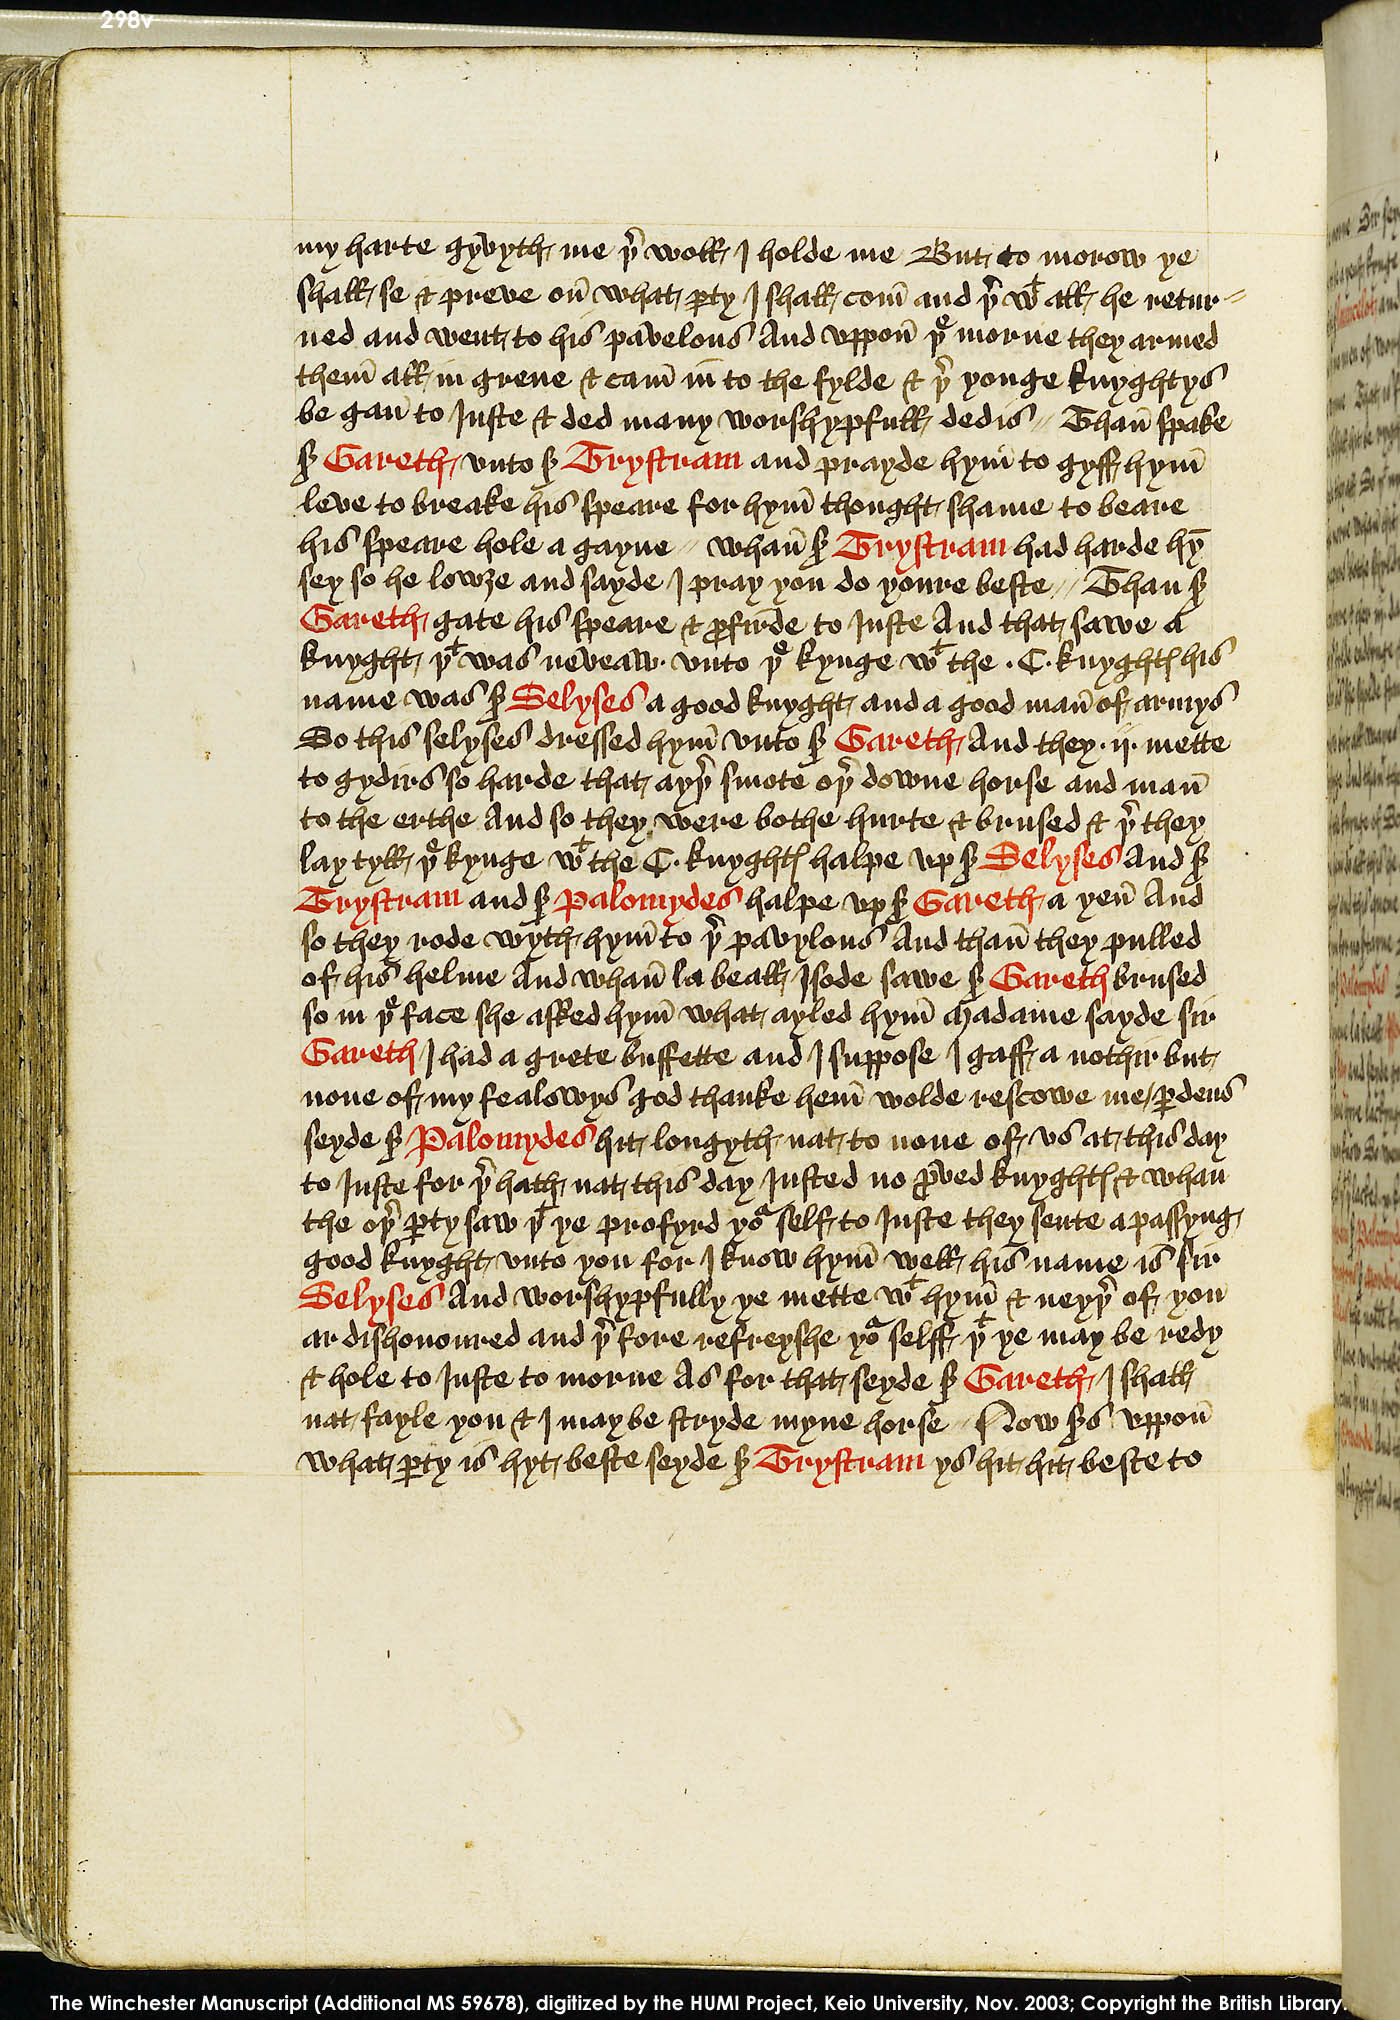 298v
my harte gyvyth me þr woll I holde me But to morow ye
shall se & preve on̄ what ꝑty I shall com̄ and þr wt all he retur=
ned and went to his pavelons And vppon̄ þe morne they armed
them̄ all in grene & cam̄ in to the fylde & þr yonge knyghtys
be gan̄ to Juste & ded many worshypfull dedis // Than̄ spake
sr Gareth vnto sr Trystram and prayde hym̄ to gyff hym̄
leve to breake his speare for hym̄ thought shame to beare
his speare hole a gayne // whan̄ sr Trystram had harde hȳ
sey so he lowȝe and sayde I pray you do youre beste // Than sr
Gareth gate his speare & ꝓfirde to Juste And that sawe a
knyght þt was neveaw vnto þe kynge wt the .C. knyghtꝭ his
name was sr Selyses a good knyght and a good man̄ of armys
So this selyses dressed hym̄ vnto sr Gareth And they .ij. mette
to gydirs so harde that ayþr smote oþr downe horse and man̄
to the erthe And so they were bothe hurte & brused & þr they
lay tyll þe kynge wt the C. knyghtꝭ halpe vp sr Selyses And sr
Trystram and sr Palomydes halpe vp sr Gareth a yen̄ And
so they rode wyth hym̄ to þr pavylons And than̄ they pulled
of his helme And whan̄ la beall Isode sawe sr Gareth brused
so in þe face she asked hym̄ what ayled hym̄ Madame sayde sir
Gareth I had a grete buffette and I suppose I gaff a nothir but
none of my fealowys god thanke hem̄ wolde rescowe me / ꝑdeus
seyde sr Palomydes hit longyth nat to none of vs at this day
to Juste for þr hath nat this day Justed no ꝓved knyghtꝭ & whan
the oþr ꝑty saw þt ye profyrd yor self to Juste they sente a passyng
good knyght vnto you for I know hym̄ well his name is sir
Selyses And worshypfully ye mette wt hym̄ & neyþr of you
ar dishonoured and þr fore refreyshe yor selff þt ye may be redy
& hole to Juste to morne As for that seyde sr Gareth I shall
nat fayle you & I may be stryde myne horse // Now srs vppon̄
what ꝑty is hyt beste seyde sr Trystram ys hit hit beste to
The Winchester Manuscript (Additional MS 59678), digitized by the HUMI Project, Keio University, Nov. 2003; Copyright the British Library.